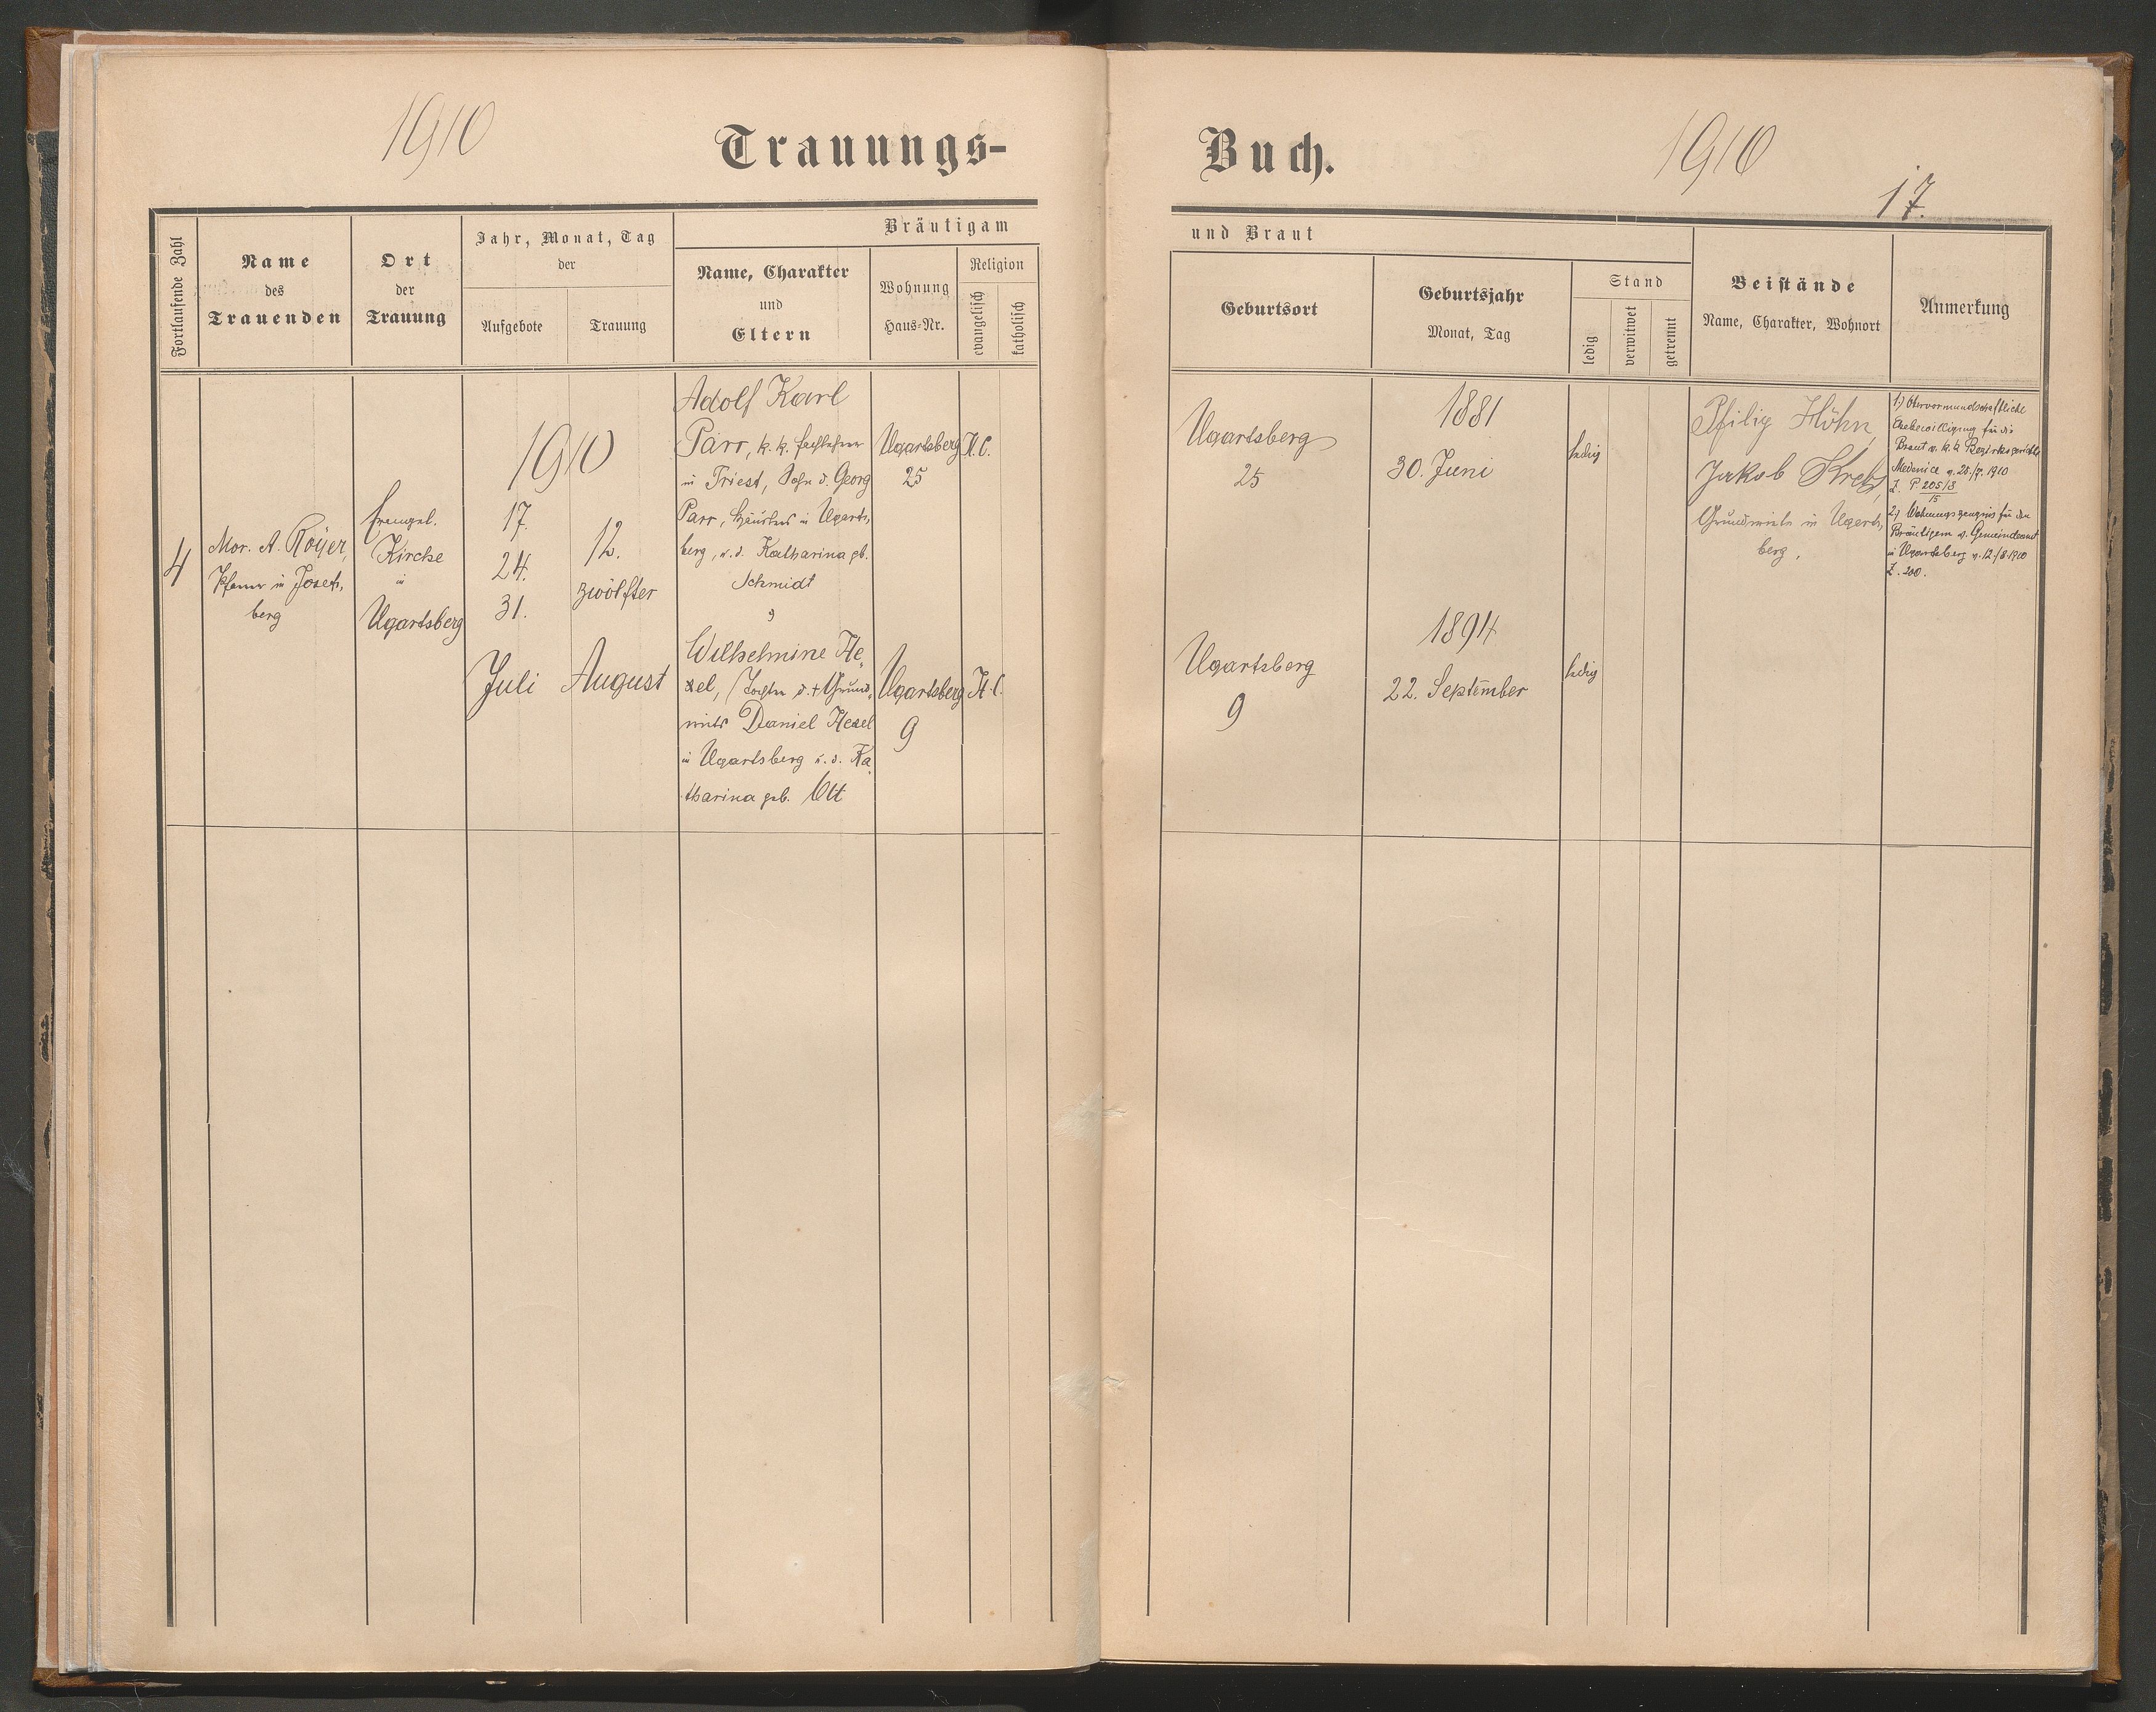 1910
Trauungs-
Fortlaufende Zahl
Name
des
Trauenden
Ort
der
Trauung
Jahr, Monat, Tag
der
Aufgebote
Trauung
Bräutigam
Name, Charakter
und
Eltern
Wohnung
Haus-Nr.
Religion
evangelisch
katholisch
4
Mor. A. Royer,
Pfarrer in Josefs,
berg
Evangel.
Kirche
in
Ugartsberg
1910
17.
24.
31.
Juli
12.
zwölfter
August
Adolf Karl
Parr, k. k. Fachlehrer
in Triest, Sohn d. Georg
Parr, Häuslers in Ugarts,
berg, u. d. Katharina gb.
Schmidt
Ugartsberg
25
H. C.
Wilhelmine He,
xel, Tochter d. + Grund,
wirts Daniel Hexel
in Ugartsberg u. d. Ka,
tharina geb. Ott
Ugartsberg
9
H. C.
Buch.
1910
17.
und Braut
Geburtsort
Geburtsjahr
Monat, Tag
Stand
ledig
verwitwet
getrennt
Beistände
Name, Charakter, Wohnort
Anmerkung
Ugartsberg
25
1881
30. Juni
ledig
Philip Höhn,
Jakob Krebs,
Grundwirte in Ugarts,
berg.
1.) Obervormundschaftliche
Ehebewilligung für die
Braut v. k. k. Bezirksgerichte
Medenice v. 25./7. 1910
Z. P 205/8
15
2.) Wohnungszeugnis für den
Bräutigam v. Gemeindeamt
in Ugartsberg v. 12./8. 1910
Z. 200.
Ugartsberg
9
1894
22. September
ledig